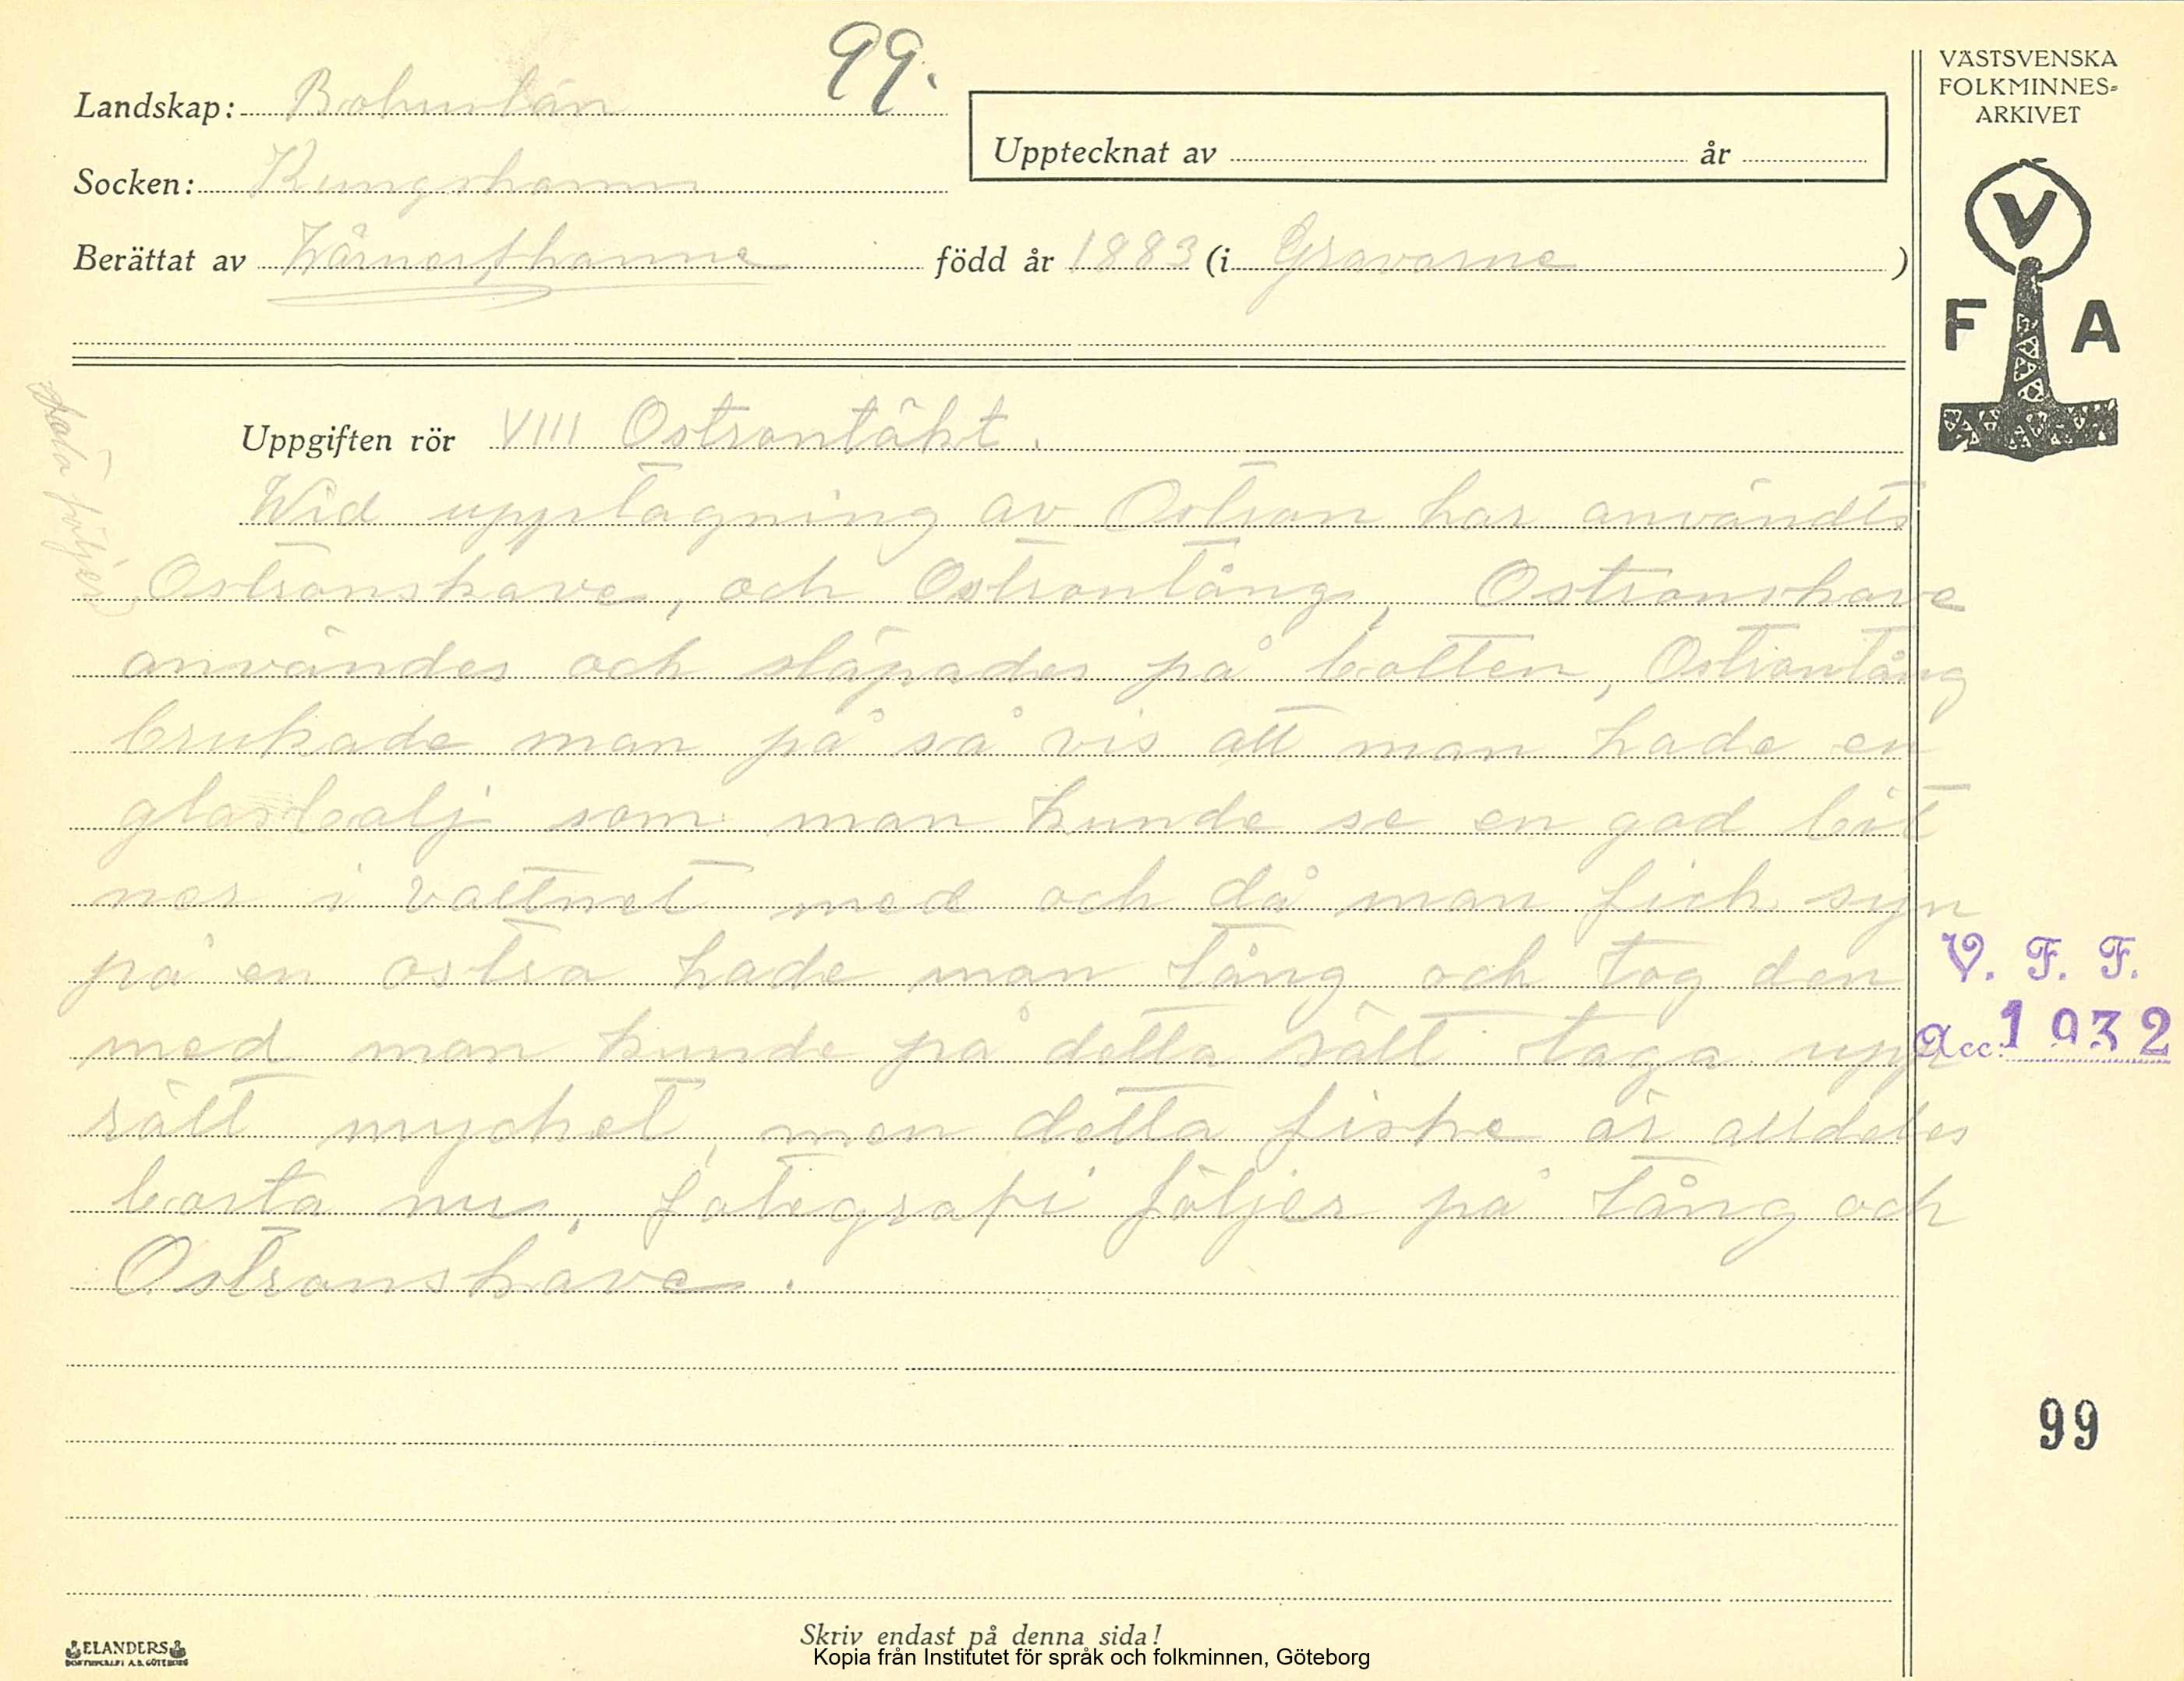 99.
VÄSTSVENSKA
FOLKMINNES-
ARKIVET
Landskap: Bohuslän
Upptecknat av år
Socken: Kungshamn
Berättat av född år 1883 (i Gravarne)
V
F A
Uppgiften rör VIII Ostrontäkt.
Wid upptagning av Ostron har användts
Ostronskave, och Ostrontång, Ostronskave
användes och släpades på botten, Ostrontång
brukade man på så vis att man hade en
glasbalj som man kunde se en god bit
ner i vattnet med och då man fick syn
på en ostra hade man tång och tog den
med man kunde på detta sätt taga upp
rätt mycket, men detta fiske är alldeles
borta nu, fotografi följer på tång och
Ostronskave.
följer
V. F. F.
Acc. 1932
99
Skriv endast på denna sida!
ELANDERS
BOKTRYCKERI A.B. GÖTEBORG
Kopia från Institutet för språk och folkminnen, Göteborg